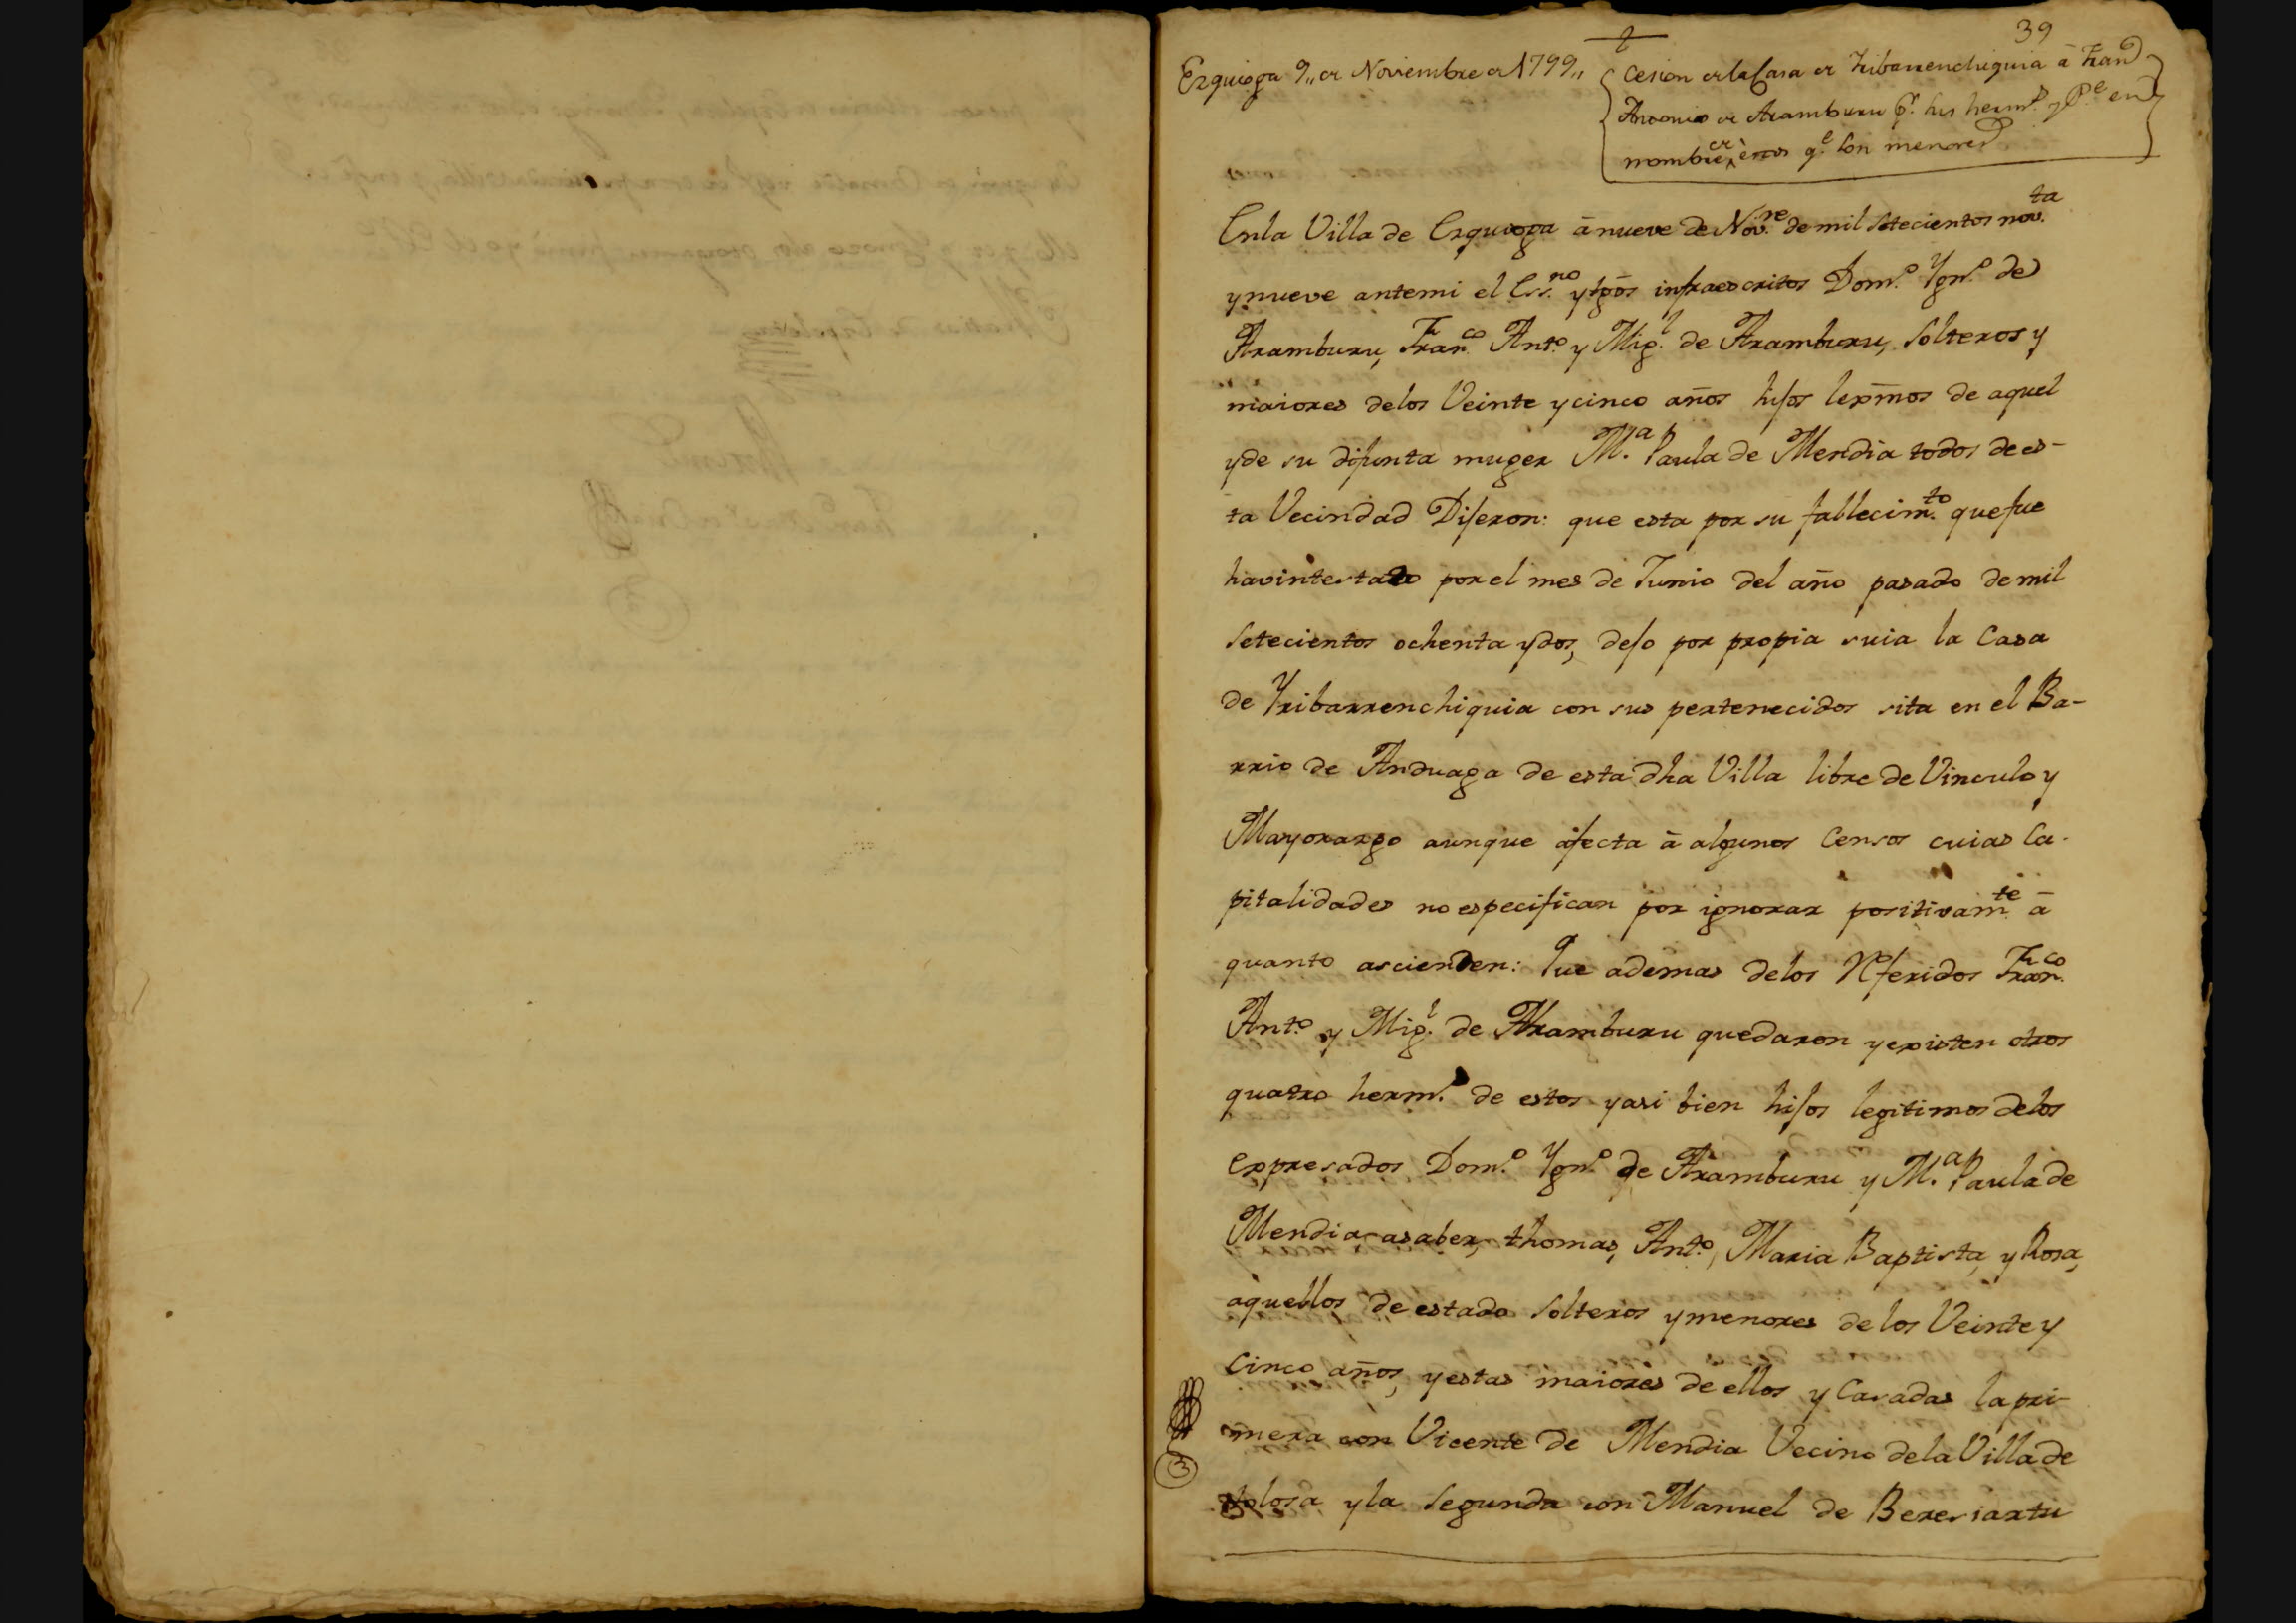 39
Ezquioga 9,, de Noviembre de 1799,,
Cesion de la Casa de Iribarrenchiquia á Fran.co
Antonio de Aramburu p.r sus herm.s y P.e en
nombre de estos q.e son menores
En la Villa de Ezquioga á nueve de Nov.re de mil setecientos nov.ta
y nueve antemi el Ess.no y tgõs infraescritos Dom.o Ygn.o de
Aramburu, Fran.co Ant.o y Mig.l de Aramburu, Solteros y
maiores delos Veinte y cinco años hijos lexm̃os de aquel
y de su difunta muger M.a Paula de Mendia todos de es-
ta Vecindad Dijeron: que esta por su fallecim.to que fue
havintestado por el mes de Junio del año pasado de mil
Setecientos ochenta y dos, dejo por propia suia la Casa
de Yribarrenchiquia con sus pertenecidos sita en el Ba-
rrio de Anduaga de esta dha Villa libre de Vinculo y
Mayorazgo aunque afecta á algunos Censos cuias Ca-
pitalidades no especifican por ignorar positivam.te á
quanto ascienden: Que ademas delos Referidos Fran.co
Ant.o y Mig.l de Aramburu quedaron y existen otros
quatro herm.s de estos y asi bien hijos legitimos delos
expresados Dom.o Ygn.o de Aramburu y M.a Paula de
Mendia asaber, thomas, Ant.o, Maria Baptista, y Rosa,
aquellos de estado Solteros y menores de los Veinte y
Cinco años, y estas maiores de ellos y Casadas la pri-
mera con Vicente de Mendia Vecino dela Villa de
tolosa y la Segunda con Manuel de Bereriartu